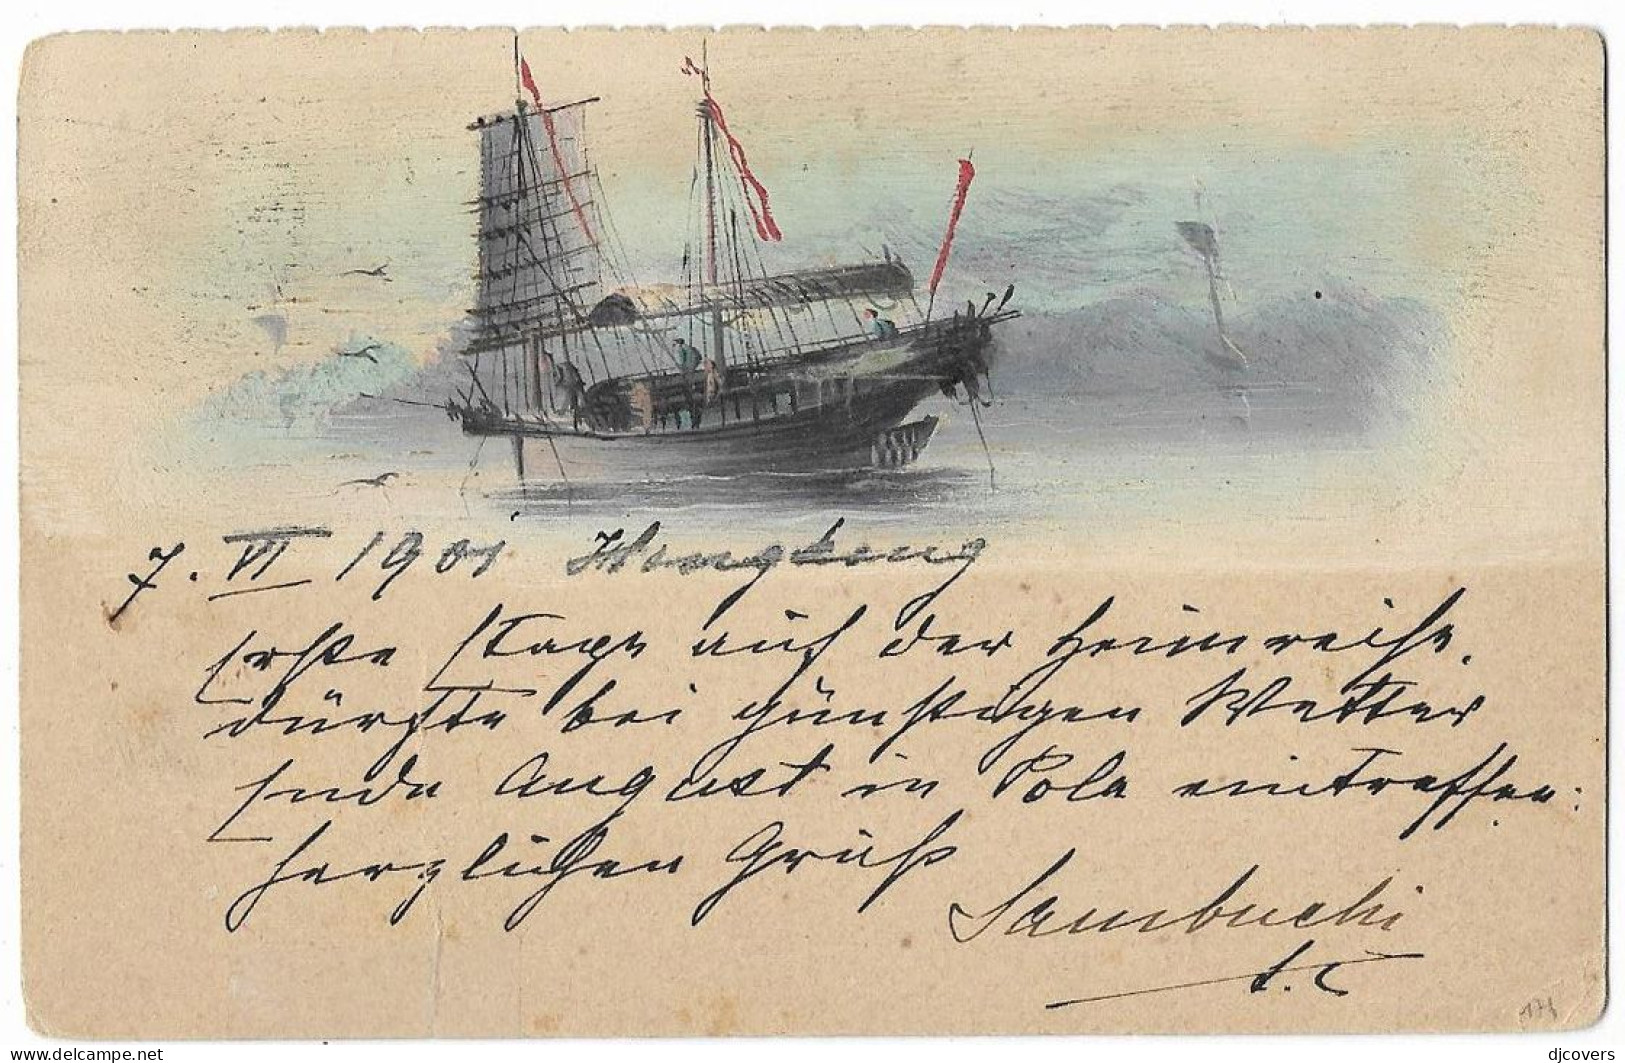 7. VI 1901 Hongkong
Erste Etape auf der Heimreise.
dürfte bei günstigen Wetter
Ende August in Pola eintreffen:
herzlichen Gruß
Sambuchi
171
delcampe.net
djcovers